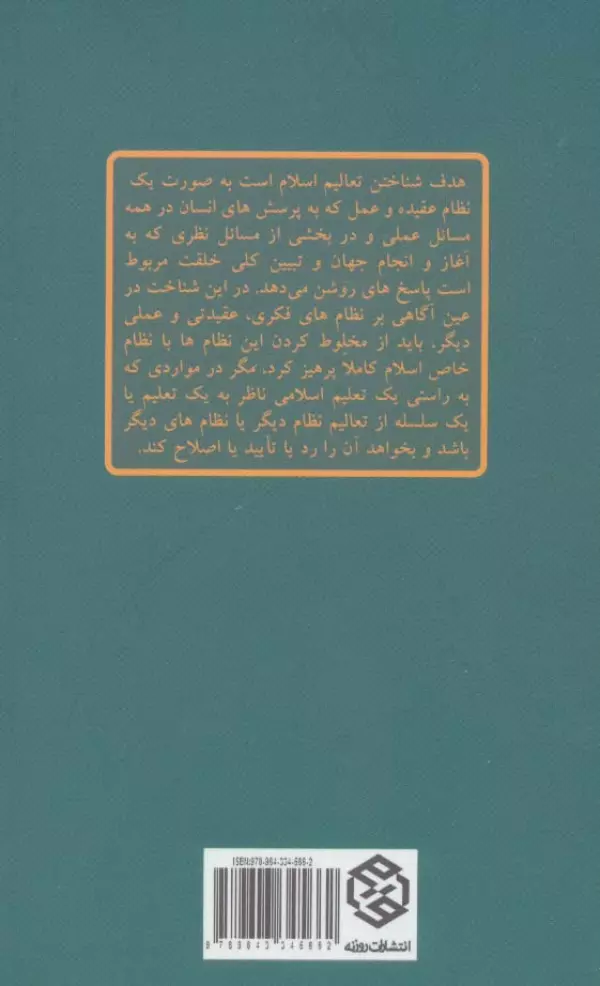 هدف شناختن تعالیم اسلام است به صورت یک
نظام عقیده و عمل که به پرسش های انسان در همه
مسائل عملی و در بخشی از مسائل نظری که به
آغاز و انجام جهان و تبیین کلی خلقت مربوط
است پاسخ های روشن می‌دهد. در این شناخت در
عین آگاهی بر نظام های فکری، عقیدتی و عملی
دیگر، باید از مخلوط کردن این نظام ها با نظام
خاص اسلام کاملاً پرهیز کرد، مگر در مواردی که
به راستی یک تعلیم اسلامی ناظر به یک تعلیم یا
یک سلسله از تعالیم نظام دیگر یا نظام های دیگر
باشد و بخواهد آن را رد یا تأیید یا اصلاح کند.
انتشارات روزنه